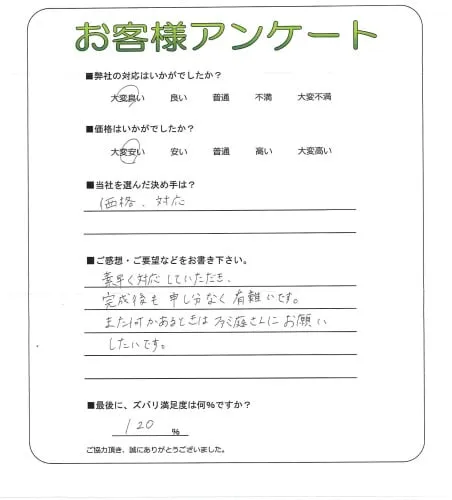 お客様アンケート
■弊社の対応はいかがでしたか？
大変良い 良い 普通 不満 大変不満
■価格はいかがでしたか？
大変安い 安い 普通 高い 大変高い
■当社を選んだ決め手は？
価格、対応
■ご感想・ご要望などをお書き下さい。
素早く対応していただき、
完成後も申し分なく有難いです。
また何かあるときは 庭さんにお願い
したいです。
■最後に、ズバリ満足度は何％ですか？
120 ％
ご協力頂き、誠にありがとうございました。